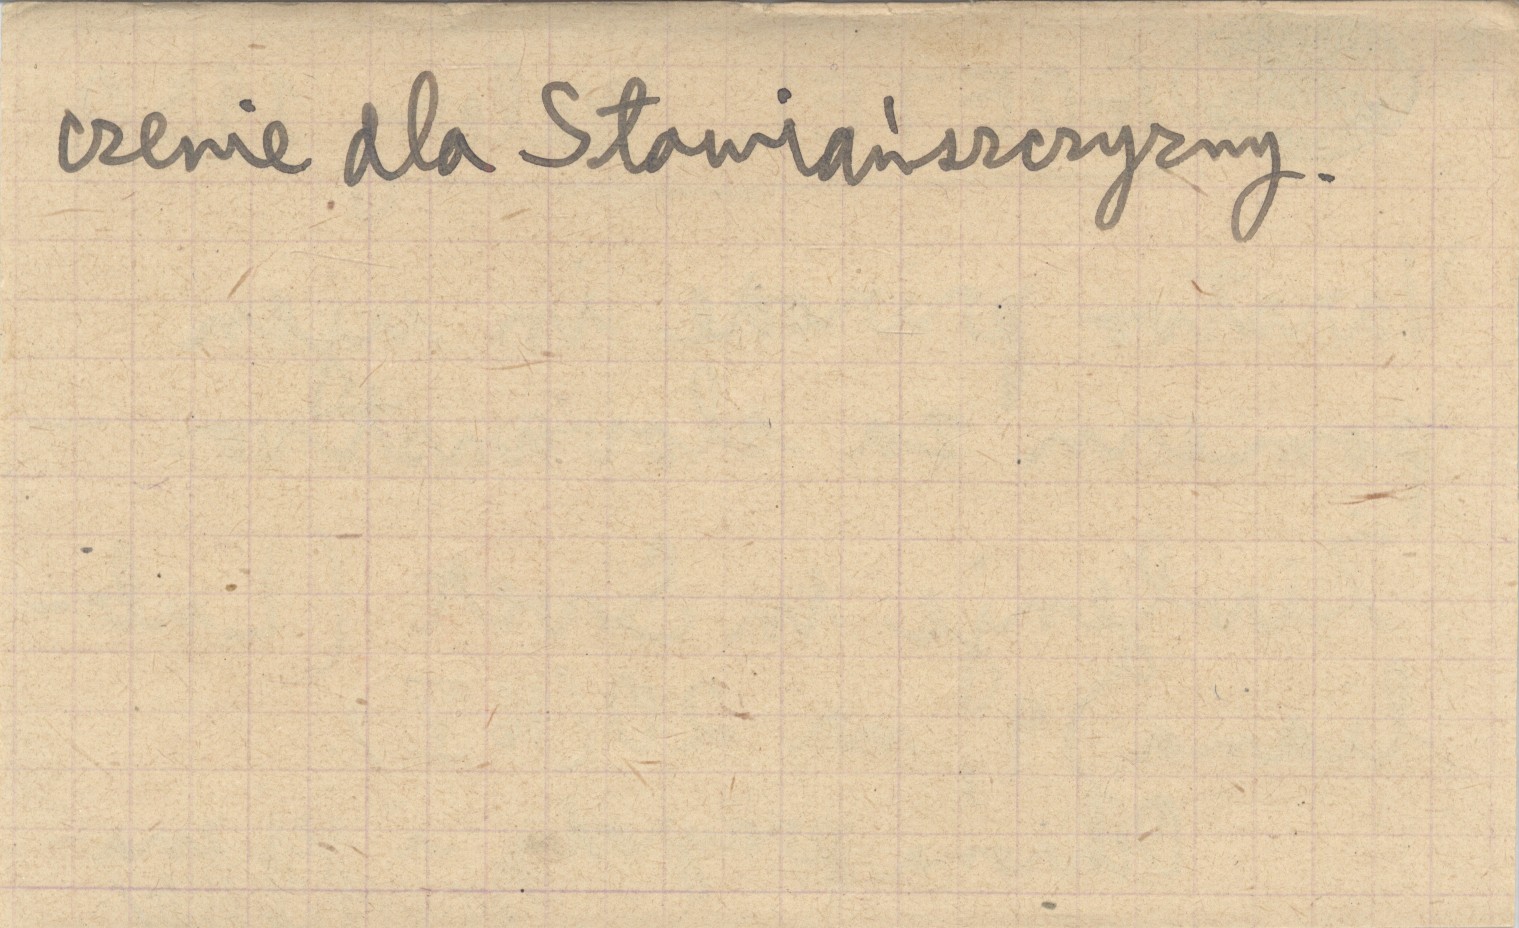 czenie dla Słowiańszczyzny.